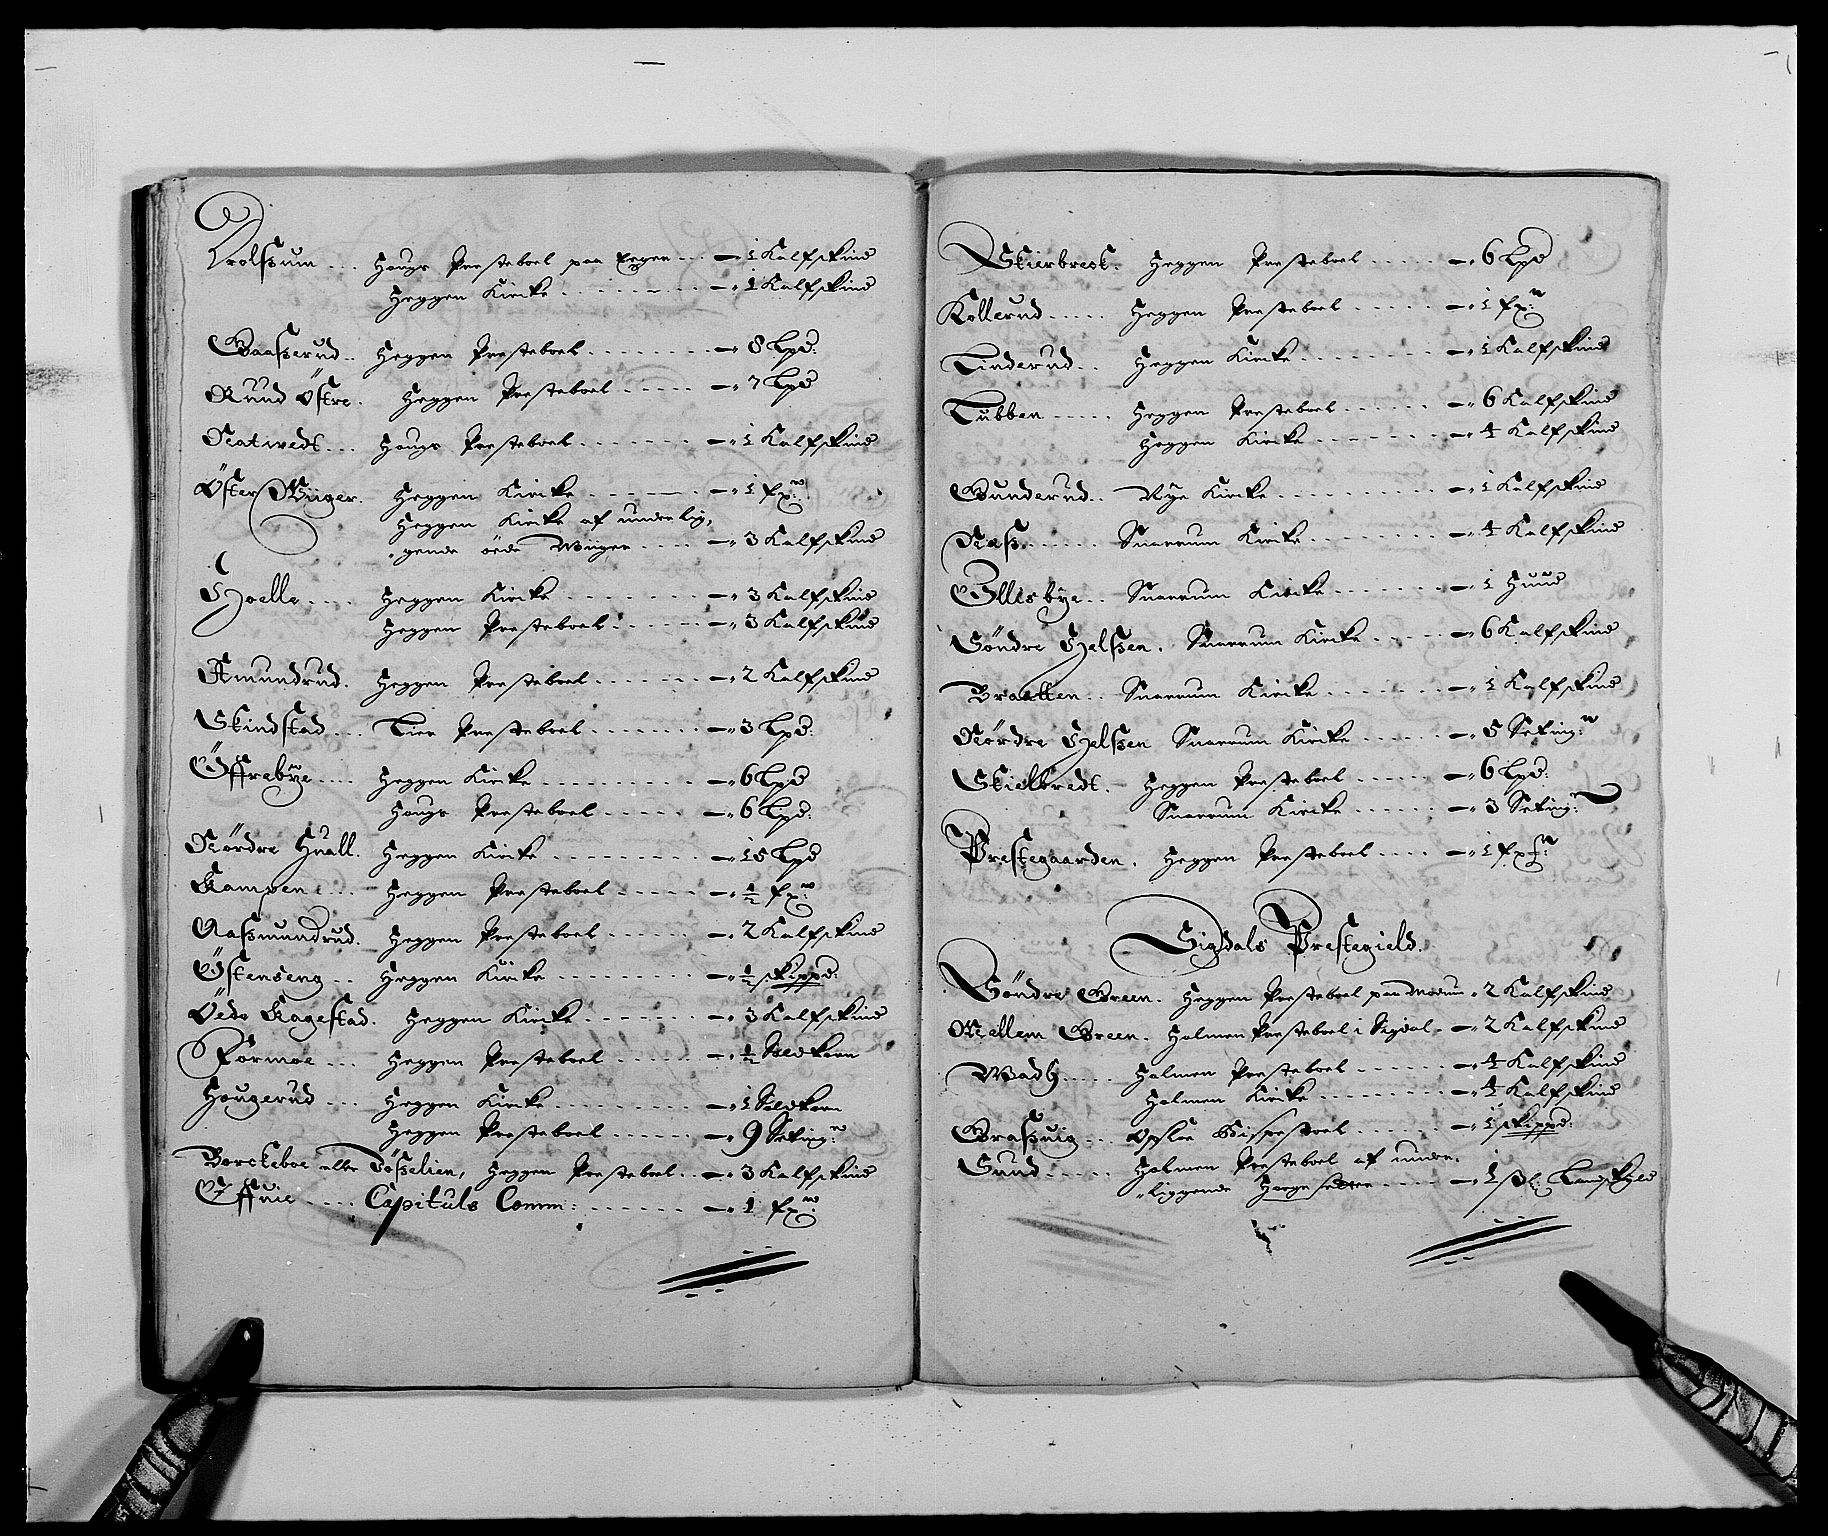 Drolsrum ... Hougs Presteboel paa Egger ... 1 Kalfskind
Heggen Kircke ........ 1 Kalfskind
Baaserud .. Heggen Presteboel ....... 8 Lpd:
Ruud Östre . Heggen Presteboel ..... 7 Lpd
Natwedt ... Hougs Presteboel ....... 1 Kalfskind
Öster Wiiger . Heggen Kircke ....... 1 fxr:
Heggen Kircke af underlig,
gende öede Wiiger .... 3 Kalfskind
Hoelle .... Heggen Kircke ....... 3 Kalfskind
Heggen Presteboel ...... 3 Kalfskind
Amundrud . Heggen Presteboel ...... 2 Kalfskind
Skindstad ... Lier Presteboel ....... 3 Lpd:
Öffrebÿe .... Heggen Kircke ........ 6 Lpd
Hougs Presteboel ..... 6 Lpd:
Nördre Huall . Heggen Kircke ........ 15 Lpd
Kampen .... Heggen Presteboel ..... ½ fxr:
Aasmundrud . Heggen Presteboel ...... 2 Kalfskind
Östenseng .. Heggen Kircke ........ ½ skippd:
Öede Kagestad . Heggen Kircke ...... 3 Kalfskind
Formoe ... Heggen Presteboel ..... ½ Sold korn
Hougerud ... Heggen Kircke ........ 1 Sold korn
Heggen Presteboel ..... 9 Seting:
Borckeboe eller Döfselien, Heggen Presteboel .. 3 Kalfskind
Effuie .... Capituls Comm: ...... 1 fxr:
Skierbrest . Heggen Presteboel ..... 6 Lpd
Kollerud ..... Heggen Presteboel ..... 1 fxr:
Linderud .. Heggen Kircke ........ 1 Kalfskind
Lubben ..... Heggen Presteboel ...... 6 Kalfskind
Heggen Kircke ....... 4 Kalfskind
Gunderud .. Nye Kircke ......... 1 Kalfskind
Næss ...... Snarum Kircke ........ 4 Kalfskind
Ellesbye .. Snarum Kircke ....... 1 Huud
Söndre Hielssen . Snarum Kircke ..... 6 Kalfskind
Braatten .. Snarum Kircke ....... 1 Kalfskind
Nördre Hielssen Snarum Kircke ...... 5 Seting:
Skielbredt . Heggen Presteboel ..... 6 Lpd:
Snarum Kircke ...... 3 Seting:
Prestegaarden . Heggen Presteboel .... 1 fxr:
Sigdals Prestegield .
Söndre Green . Heggen Presteboel paa Modum . 2 Kalfskind
Mellem Green . Holmen Presteboel i Sigdal . 2 Kalfskind
Wad ..... Holmen Presteboel ...... 4 Kalfskind
Holmen Kircke ........ 4 Kalfskind
Græsuig ... Opsloe Bispestoel ...... 1 skippd:
Lund ..... Holmen Presteboel af under,
liggende .... 1 Landskyld